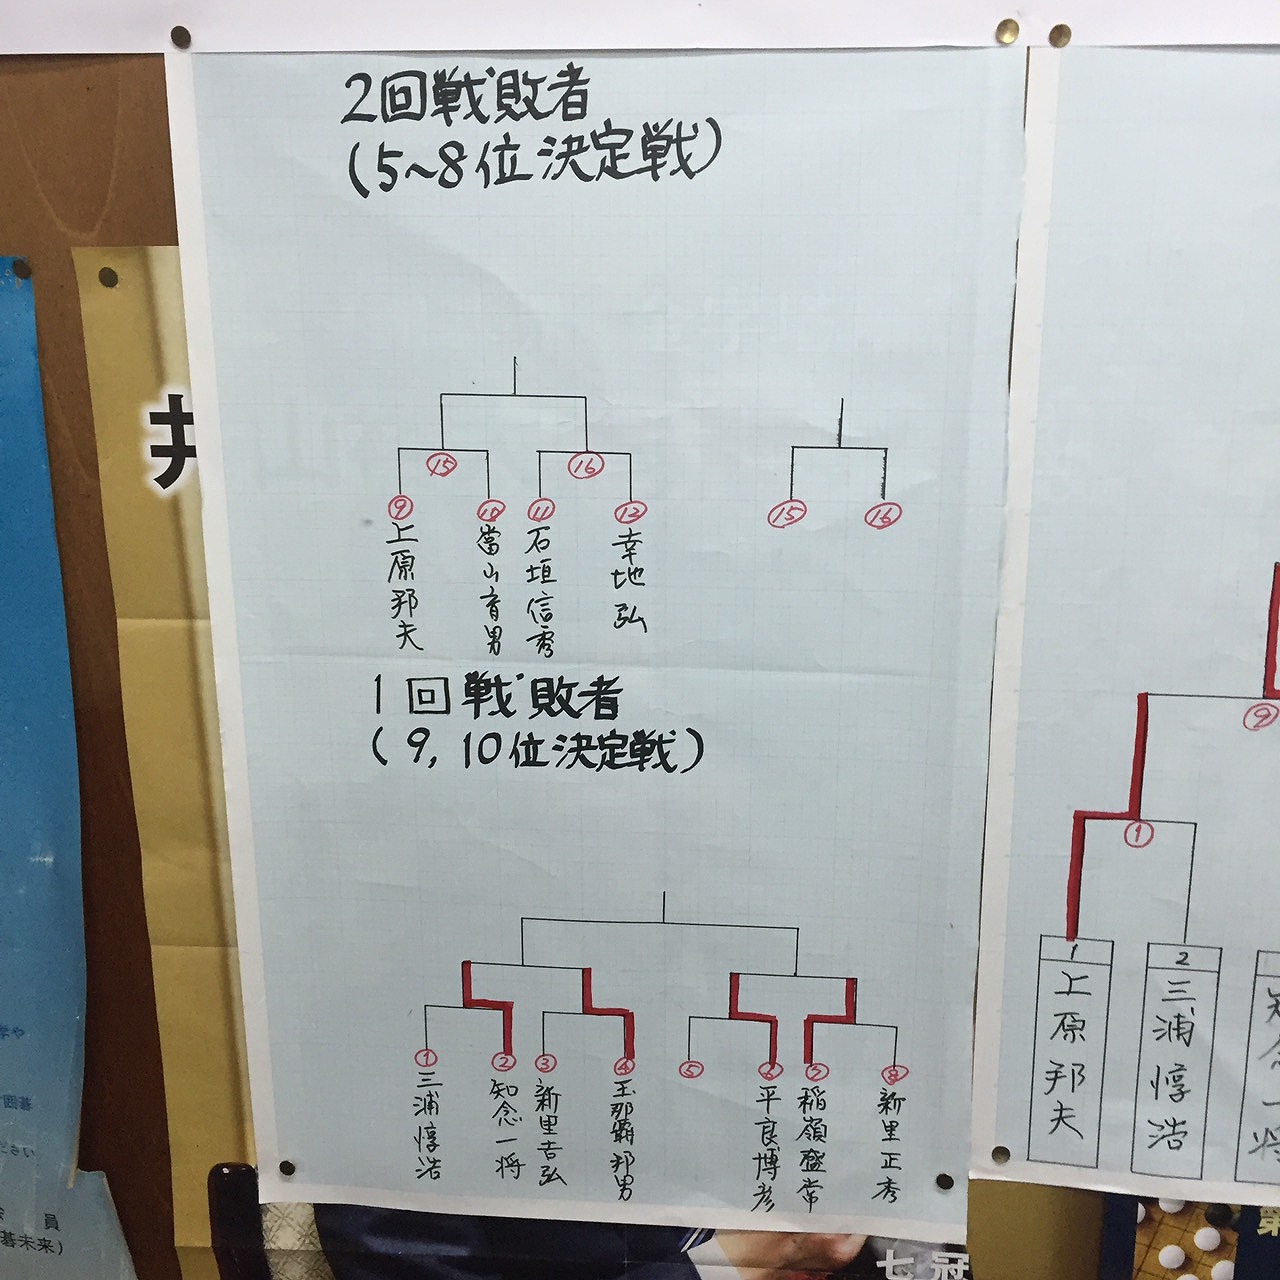 2回戦敗者
(5~8位決定戦)
⑮
⑯
⑨
⑩
⑪
⑫
上原邦夫
當山育男
石垣信秀
幸地弘
⑮
⑯
1回戦敗者
(9,10位決定戦)
①
②
③
④
⑤
⑥
⑦
⑧
三浦惇浩
知念一将
新里吉弘
玉那覇邦男
平良博彦
稲嶺盛常
新里正秀
⑨
①
1
2
上原邦夫
三浦惇浩
知念一将
囲碁
ださい
会員
碁未来)
七冠
第